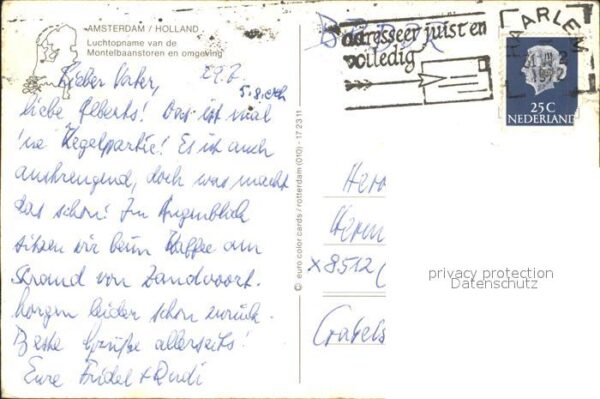 AMSTERDAM / HOLLAND
Luchtopname van de
Montelbaanstoren en omgeving
Lieber Vater, 29.7
liebe Alberts! Das ist mal
'ne Kegelpartie! Es ist auch
anstrengend, doch was macht
das schon! Im Augenblick
sitzen wir beim Kaffee am
Strand von Zandvoort.
Morgen leider schon zurück.
Beste Grüße allerseits!
Eure Fridel + Rudi
© euro color cards / rotterdam (010) - 17 23 11
adresseer juist en
volledig
HAARLEM
25 C
NEDERLAND
x8512
privacy protection
Datenschutz